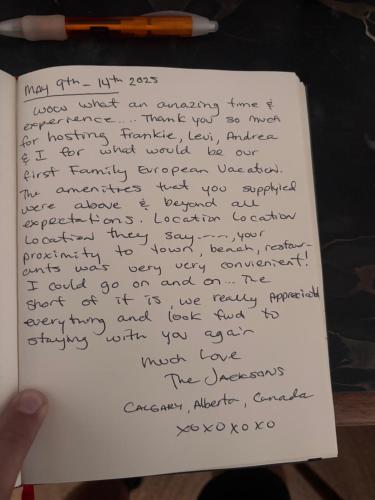 MAY 9th - 14th 2025
WOW what an amazing time &
experience.... Thank you so much
for hosting Frankie, Levi, Andrea
& I for what would be our
first Family European Vacation.
The amenitres that you supplyied
were above & beyond all
expectations. Location Location
Location they say ----, your
proximity to town, beach, restaur-
ants was very very convienient!
I could go on and on... The
short of it is, we really Appreciated
everything and look fwd to
staying with you again
Much Love
The JACKSONS
CALGARY, Alberta, Canada
XOXOXOXO